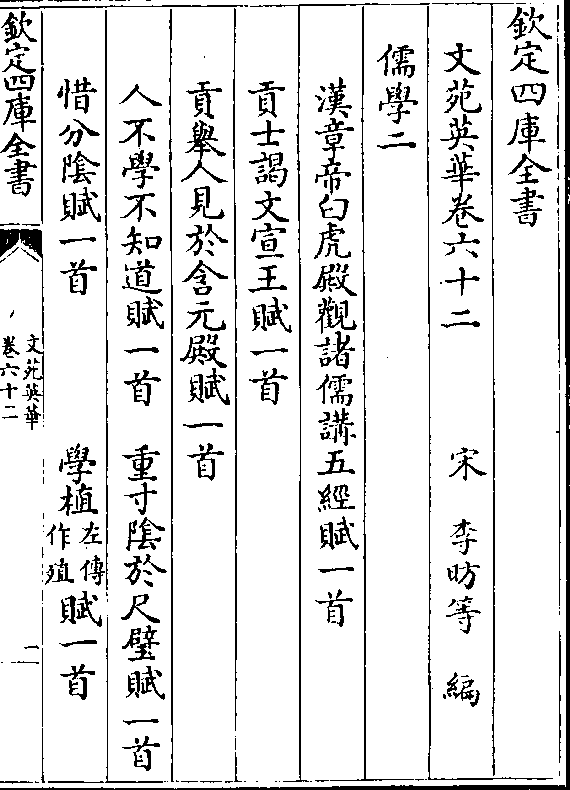 欽定四庫全書
文苑英華卷六十二　宋　李昉等　編
儒學二
漢章帝白虎殿觀諸儒講五經賦一首
貢士謁文宣王賦一首
貢舉人見於含元殿賦一首
人不學不知道賦一首　重寸陰於尺璧賦一首
惜分陰賦一首　學植左傳作殖賦一首
欽定四庫全書
文苑英華
卷六十二
一